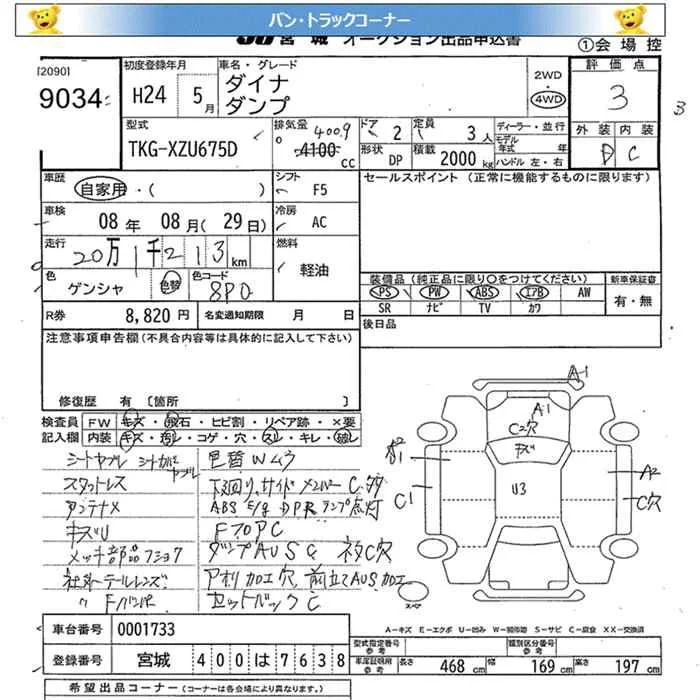 バン・トラックコーナー
宮城 オークション出品申込書
①会場控
[2090]
9034
初度登録年月
H24 5月
車名・グレード
ダイナ
ダンプ
2WD
4WD
評価点
3
3
外装 内装
D C
型式
TKG-XZU675D
排気量
400.9
4100 cc
ドア 2
定員 3人
形状 DP
積載 2000 kg
ディーラー・並行
モデル年式 年
ハンドル 左・右
車歴
自家用・( )
シフト F5
セールスポイント (正常に機能するものに限ります)
車検
08年 08月(29日)
冷房 AC
走行
20万1千213km
燃料
軽油
色
ゲンシャ
色替
色コード
8P0
装備品(純正品に限り○をつけてください)
新車保証書
PS PW ABS エアB AW
SR ナビ TV カワ
有・無
R券 8,820円
名変通知期限 月 日
後日品
注意事項申告欄(不具合内容等は具体的に記入して下さい)
修復歴 有〔箇所 〕
検査員記入欄
FW キズ・飛石・ヒビ割・リペア跡・×要
内装 キズ・汚れ・コゲ・穴・スレ・キレ・破れ
シートヤブレ シートカバーヤブレ
スタットレス
アンテナメ
キズU
メッキ部品フショク
社外テールレンズ
〃 Fバンパ
色替Wムラ
下廻り、サイドメンバーC多
ABS E/g DPR ランプ点灯
FフロアC
ダンプAUSC ネタC穴
アオリ加工穴 前立てAUS加工
セットバックC
A-1
A-1
C2穴
キズ
U3
C1
A2
C穴
スペア
A-キズ E-エクボ U-凹み W-補修跡 S-サビ C-腐食 XX-交換済
車台番号 0001733
登録番号 宮城 400は7638
型式指定番号 参考
類別区分番号 参考
車庫証明用参考 長さ 468 cm 幅 169 cm 高さ 197 cm
希望出品コーナー (コーナーは各会場により異なります。)